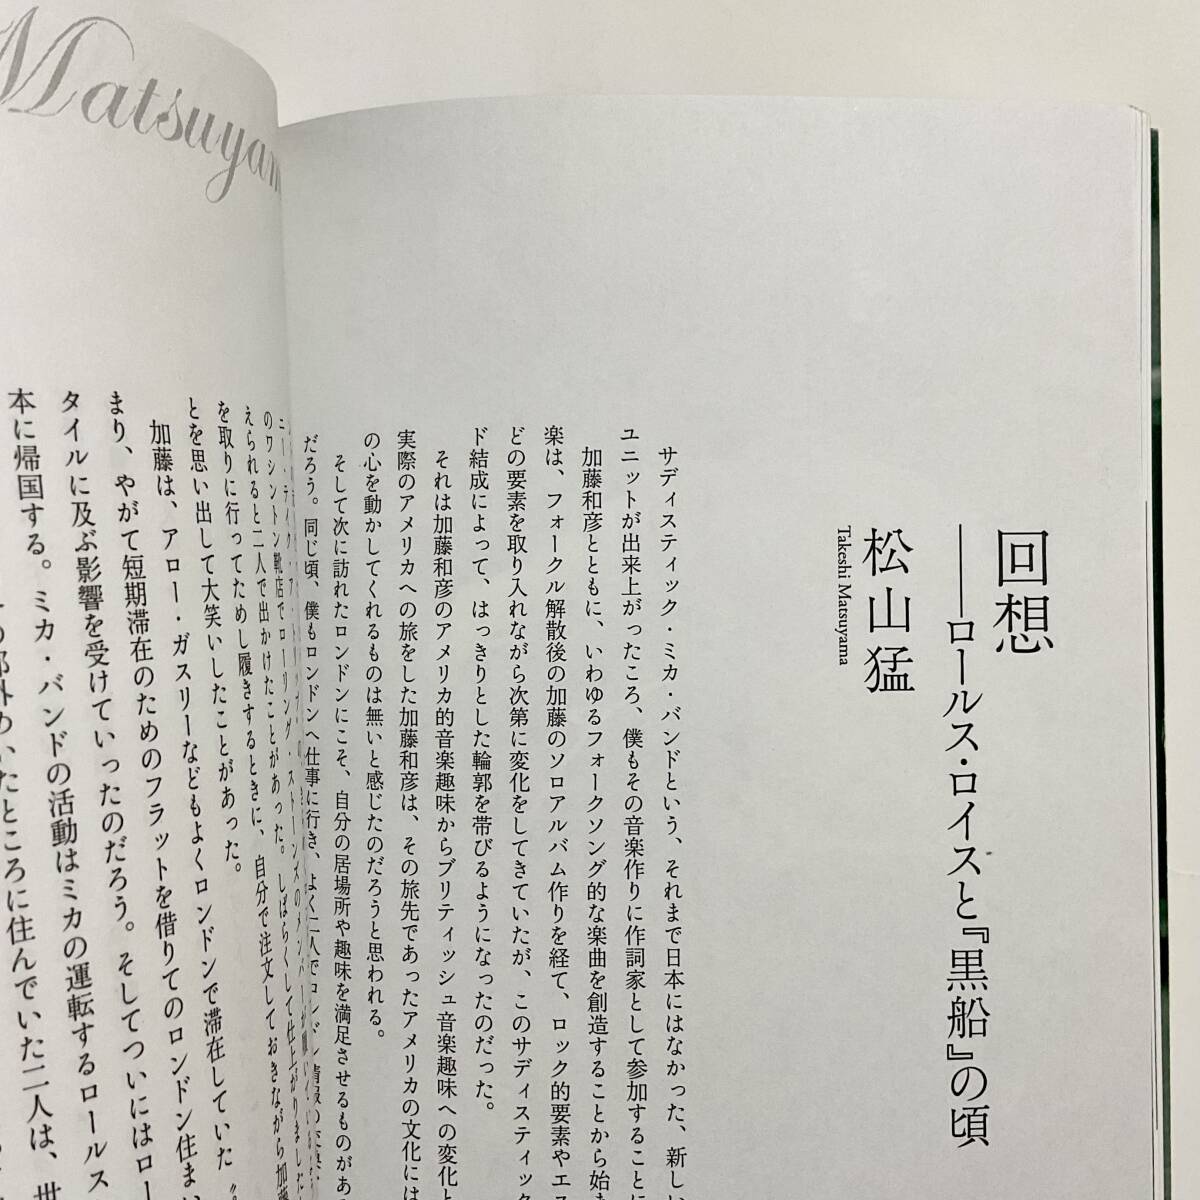 回想
――ロールス・ロイスと『黒船』の頃
松山猛
Takeshi Matsuyama
サディスティック・ミカ・バンドという、それまで日本にはなかった、新しい
ユニットが出来上がったころ、僕もその音楽作りに作詞家として参加することに
加藤和彦とともに、いわゆるフォークソング的な楽曲を創造することから始ま
楽は、フォークル解散後の加藤のソロアルバム作りを経て、ロック的要素やエス
どの要素を取り入れながら次第に変化をしてきていたが、このサディスティック
ド結成によって、はっきりとした輪郭を帯びるようになったのだった。
それは加藤和彦のアメリカ的音楽趣味からブリティッシュ音楽趣味への変化と
実際のアメリカへの旅をした加藤和彦は、その旅先であったアメリカの文化には
の心を動かしてくれるものは無いと感じたのだろうと思われる。
そして次に訪れたロンドンにこそ、自分の居場所や趣味を満足させるものがあ
だろう。同じ頃、僕もロンドンへ仕事に行き、よく二人でロンドン情報の交換
Matsuyam
のワシントン靴店でローリング・ストーンズのメンバーが
えられると二人で出かけたことがあった。しばらくして仕上がりました
を取りに行ってためし履きするときに、自分で注文しておきながら加藤
とを思い出して大笑いしたことがあった。
加藤は、アロー・ガスリーなどもよくロンドンで滞在していた〝
まり、やがて短期滞在のためのフラットを借りてのロンドン住まい
タイルに及ぶ影響を受けていったのだろう。そしてついにはロー
本に帰国する。ミカ・バンドの活動はミカの運転するロールス
たところに住んでいた二人は、世